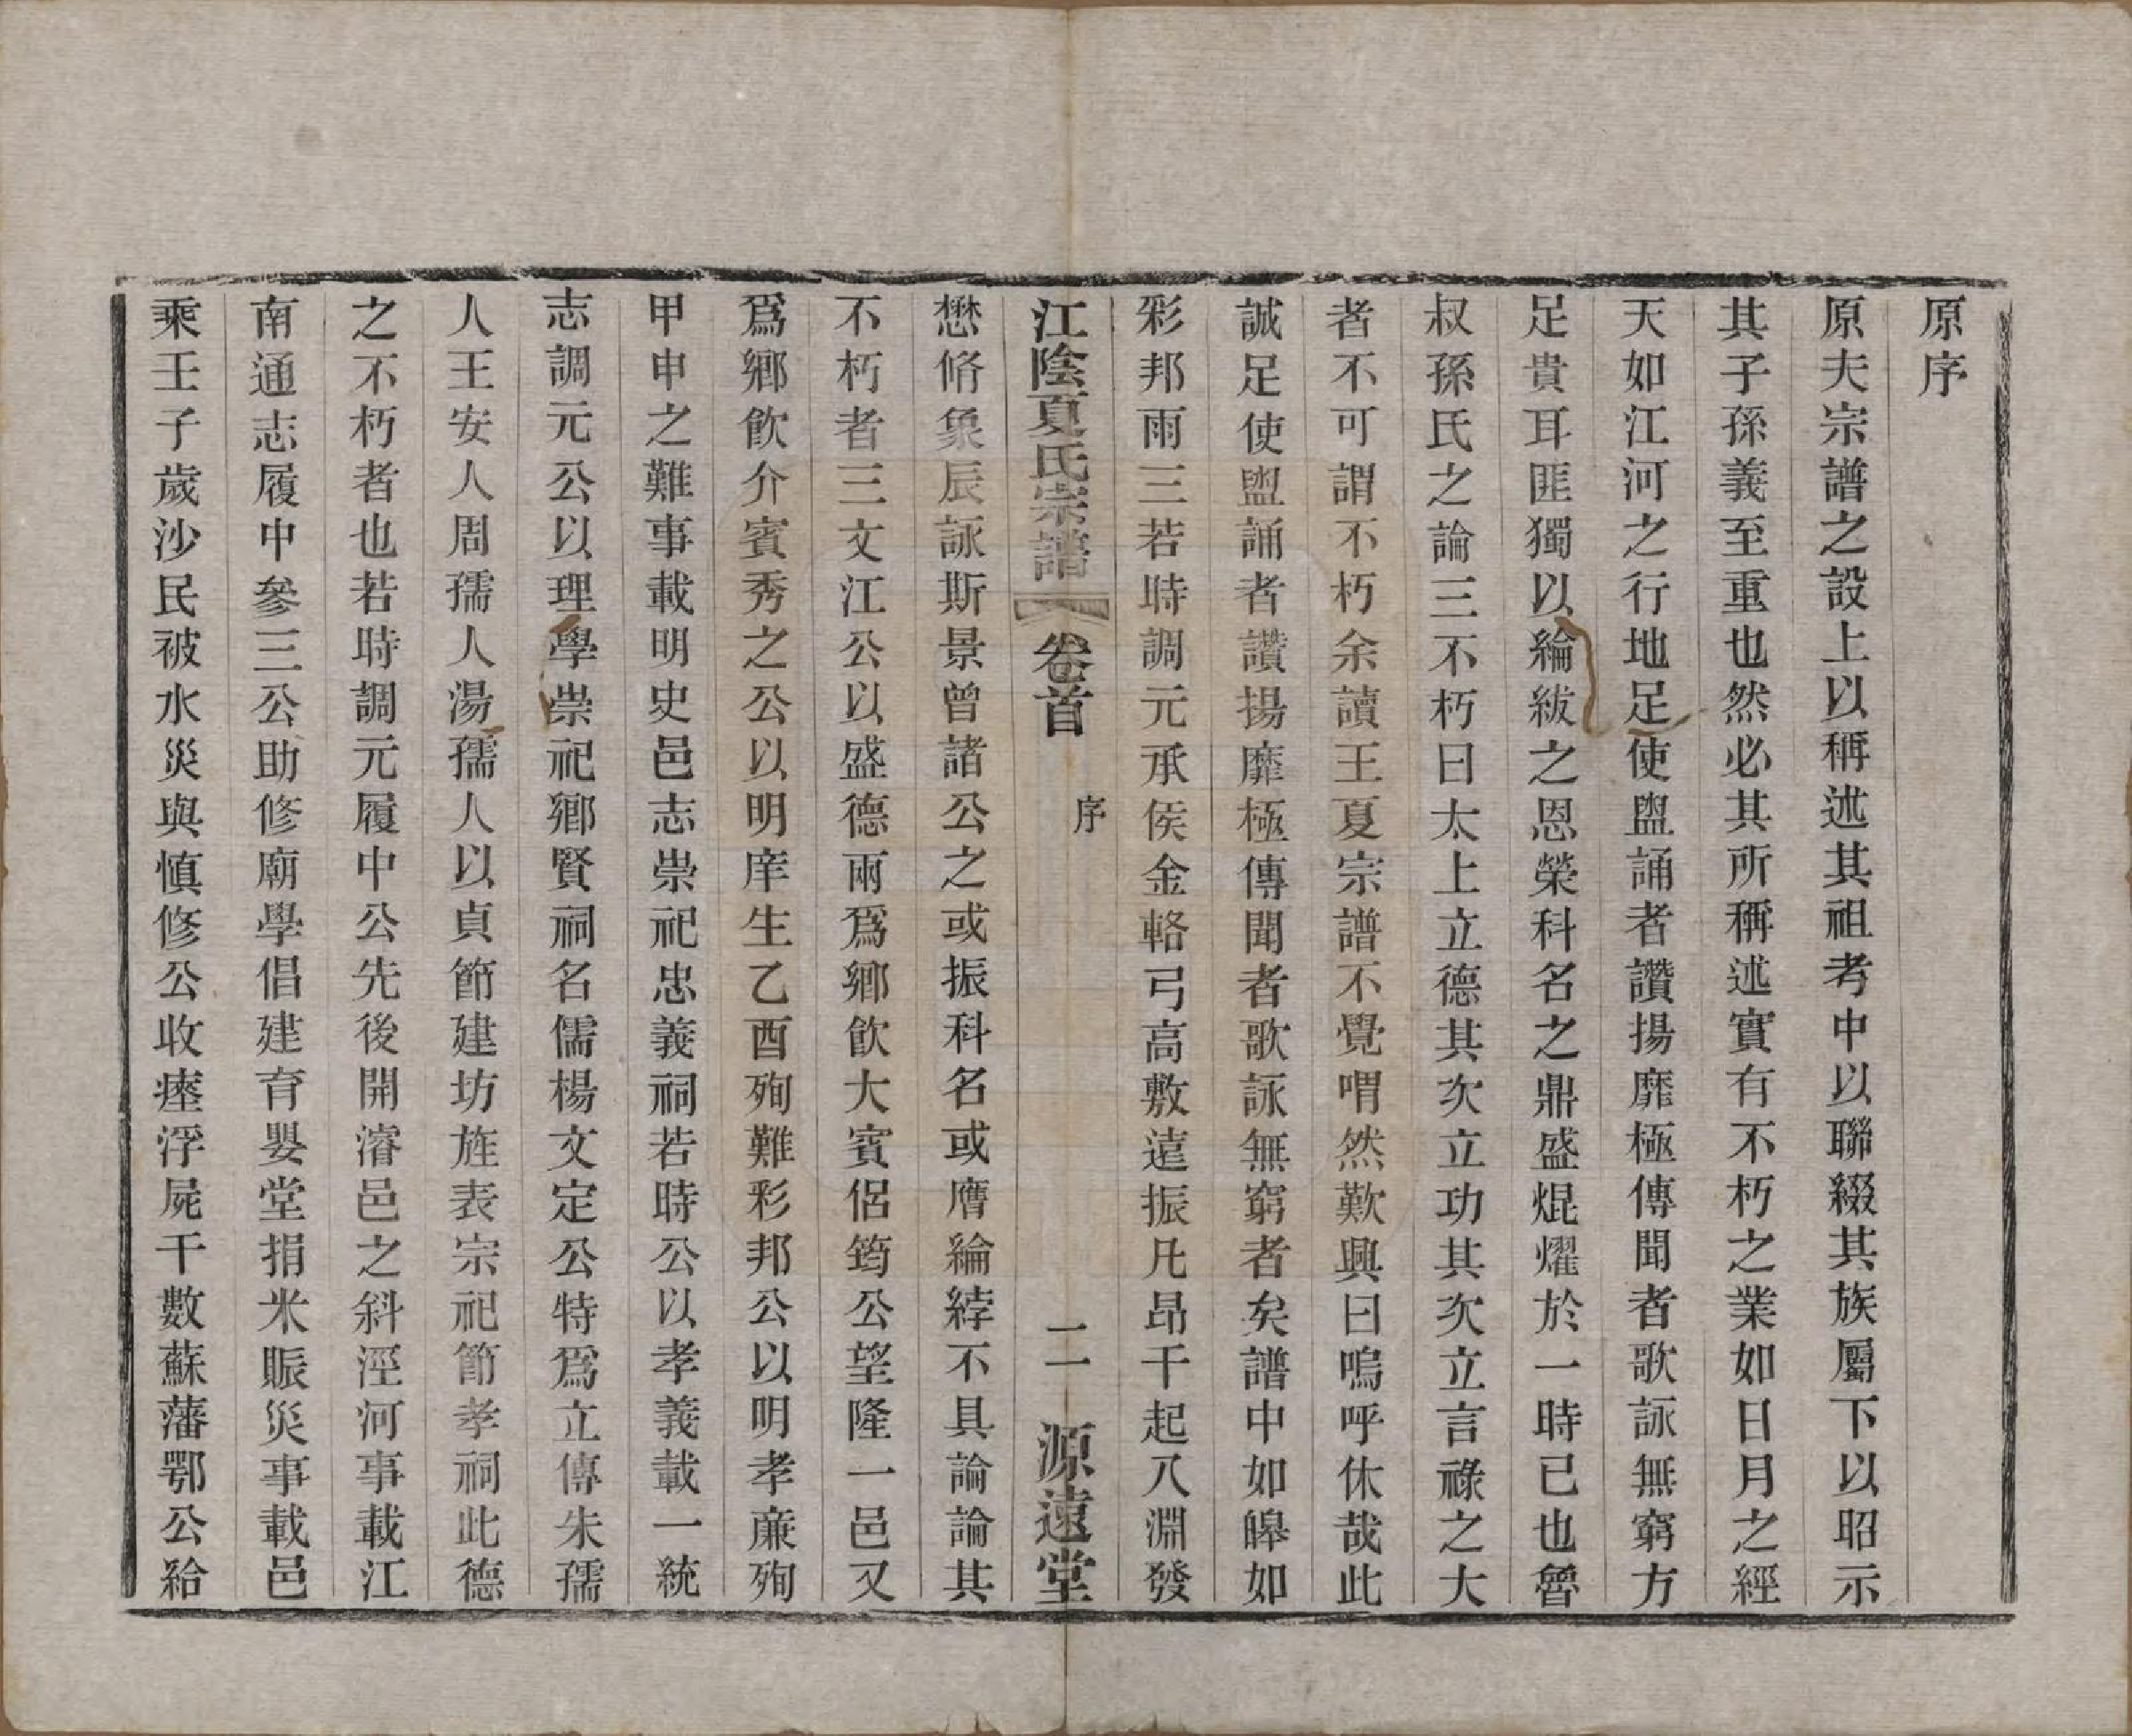 原序
原夫宗譜之設上以稱述其祖考中以聯綴其族屬下以昭示
其子孫義至重也然必其所稱述實有不朽之業如日月之經
天如江河之行地足使盥誦者讚揚靡極傳聞者歌詠無窮方
足貴耳匪獨以綸紱之恩榮科名之鼎盛焜燿於一時已也魯
叔孫氏之論三不朽曰太上立德其次立功其次立言祿之大
者不可謂不朽余讀王夏宗譜不覺喟然歎興曰嗚呼休哉此
誠足使盥誦者讚揚靡極傳聞者歌詠無窮者矣譜中如皞如
彩邦雨三若時調元承侯金輅弓高敷遠振凡昂千起八淵發
江陰夏氏宗譜 卷首 序 二一 源遠堂
懋脩象辰詠斯景曾諸公之或振科名或膺綸綍不具論論其
不朽者三文江公以盛德兩爲鄉飲大賓侶筠公望隆一邑又
爲鄉飲介賓秀之公以明庠生乙酉殉難彩邦公以明孝廉殉
甲申之難事載明史邑志崇祀忠義祠若時公以孝義載一統
志調元公以理學崇祀鄉賢祠名儒楊文定公特爲立傳朱孺
人王安人周孺人湯孺人以貞節建坊旌表宗祀節孝祠此德
之不朽者也若時調元履中公先後開濬邑之斜涇河事載江
南通志履中參三公助修廟學倡建育嬰堂捐米賑災事載邑
乘壬子歲沙民被水災與慎修公收瘞浮屍千數蘇藩鄂公給